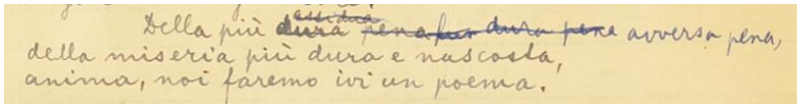 assidua
Della più dura pena dura pena avversa pena,
della miseria più dura e nascosta,
anima, noi faremo ivi un poema.